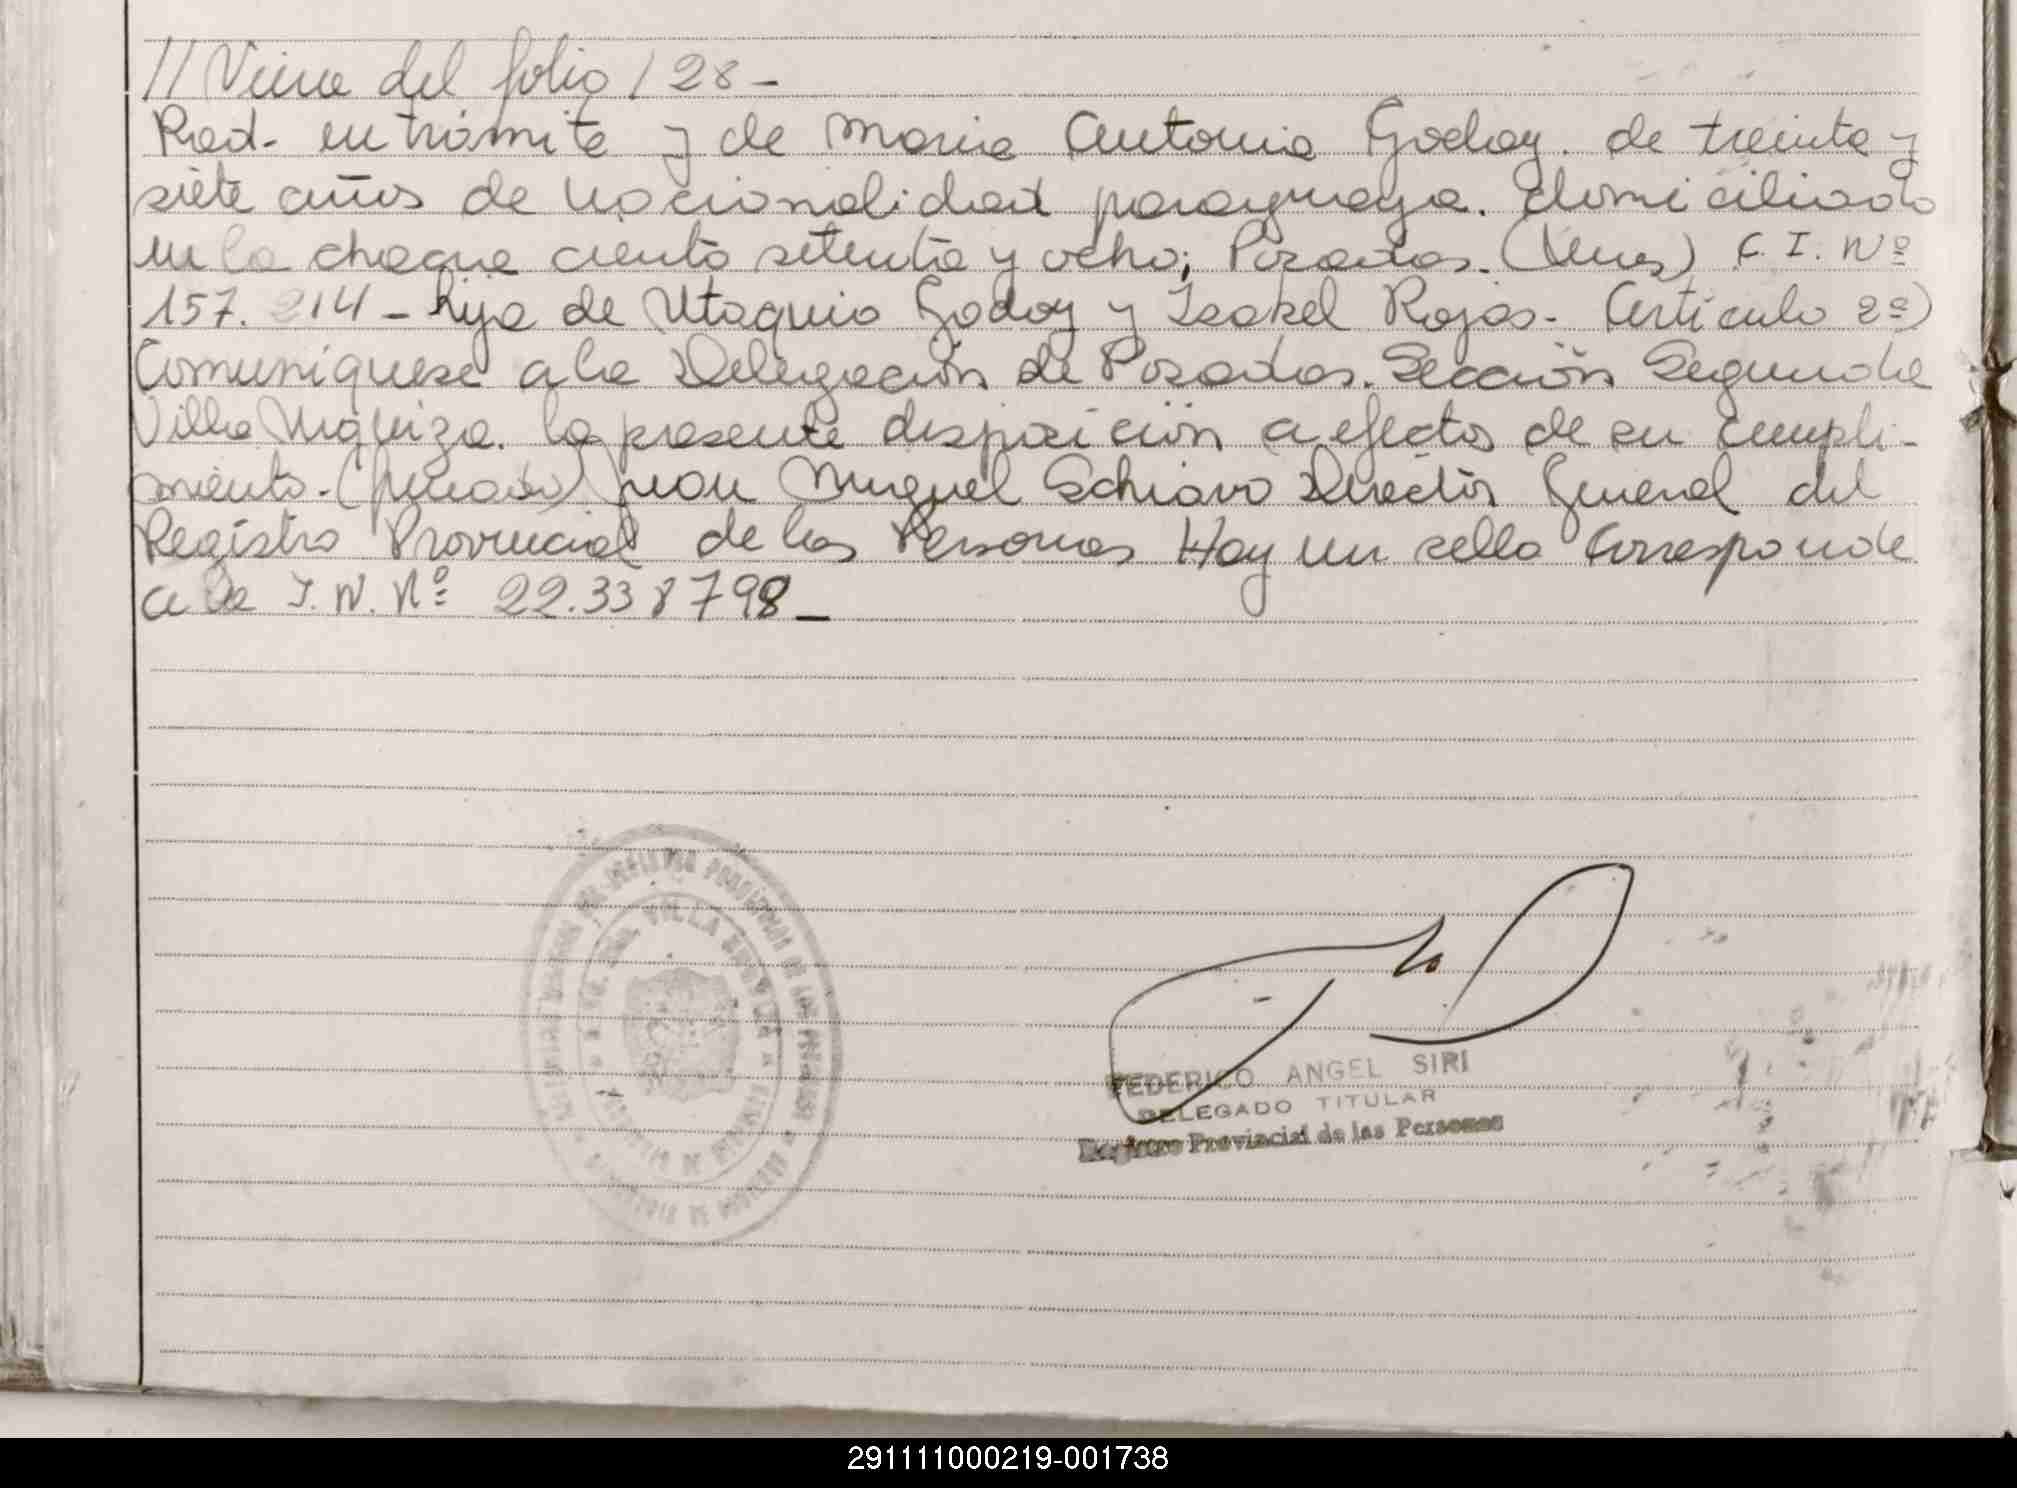 // Viene del folio 128 -
Rad. en trámite y de Maria Antonia Godoy. de treinta y
siete años de nacionalidad paraguaya. domiciliada
en la chacra ciento setenta y ocho; Posadas. (Mnes) C. I. Nº
157.214 - hija de Utaquio Godoy y Isabel Rojas - Artículo 2º)
Comuníquese a la Delegación de Posadas. Sección Segunda
Villa Urquiza. la presente disposición a efectos de su cumpli-
miento - (firmado) Juan Miguel Schiavo Director General del
Registro Provincial de las Personas Hay un sello Corresponde
a la I. N. Nº 22.338798 -
VILLA URQUIZA
FEDERICO ANGEL SIRI
DELEGADO TITULAR
Registro Provincial de las Personas
291111000219-001738